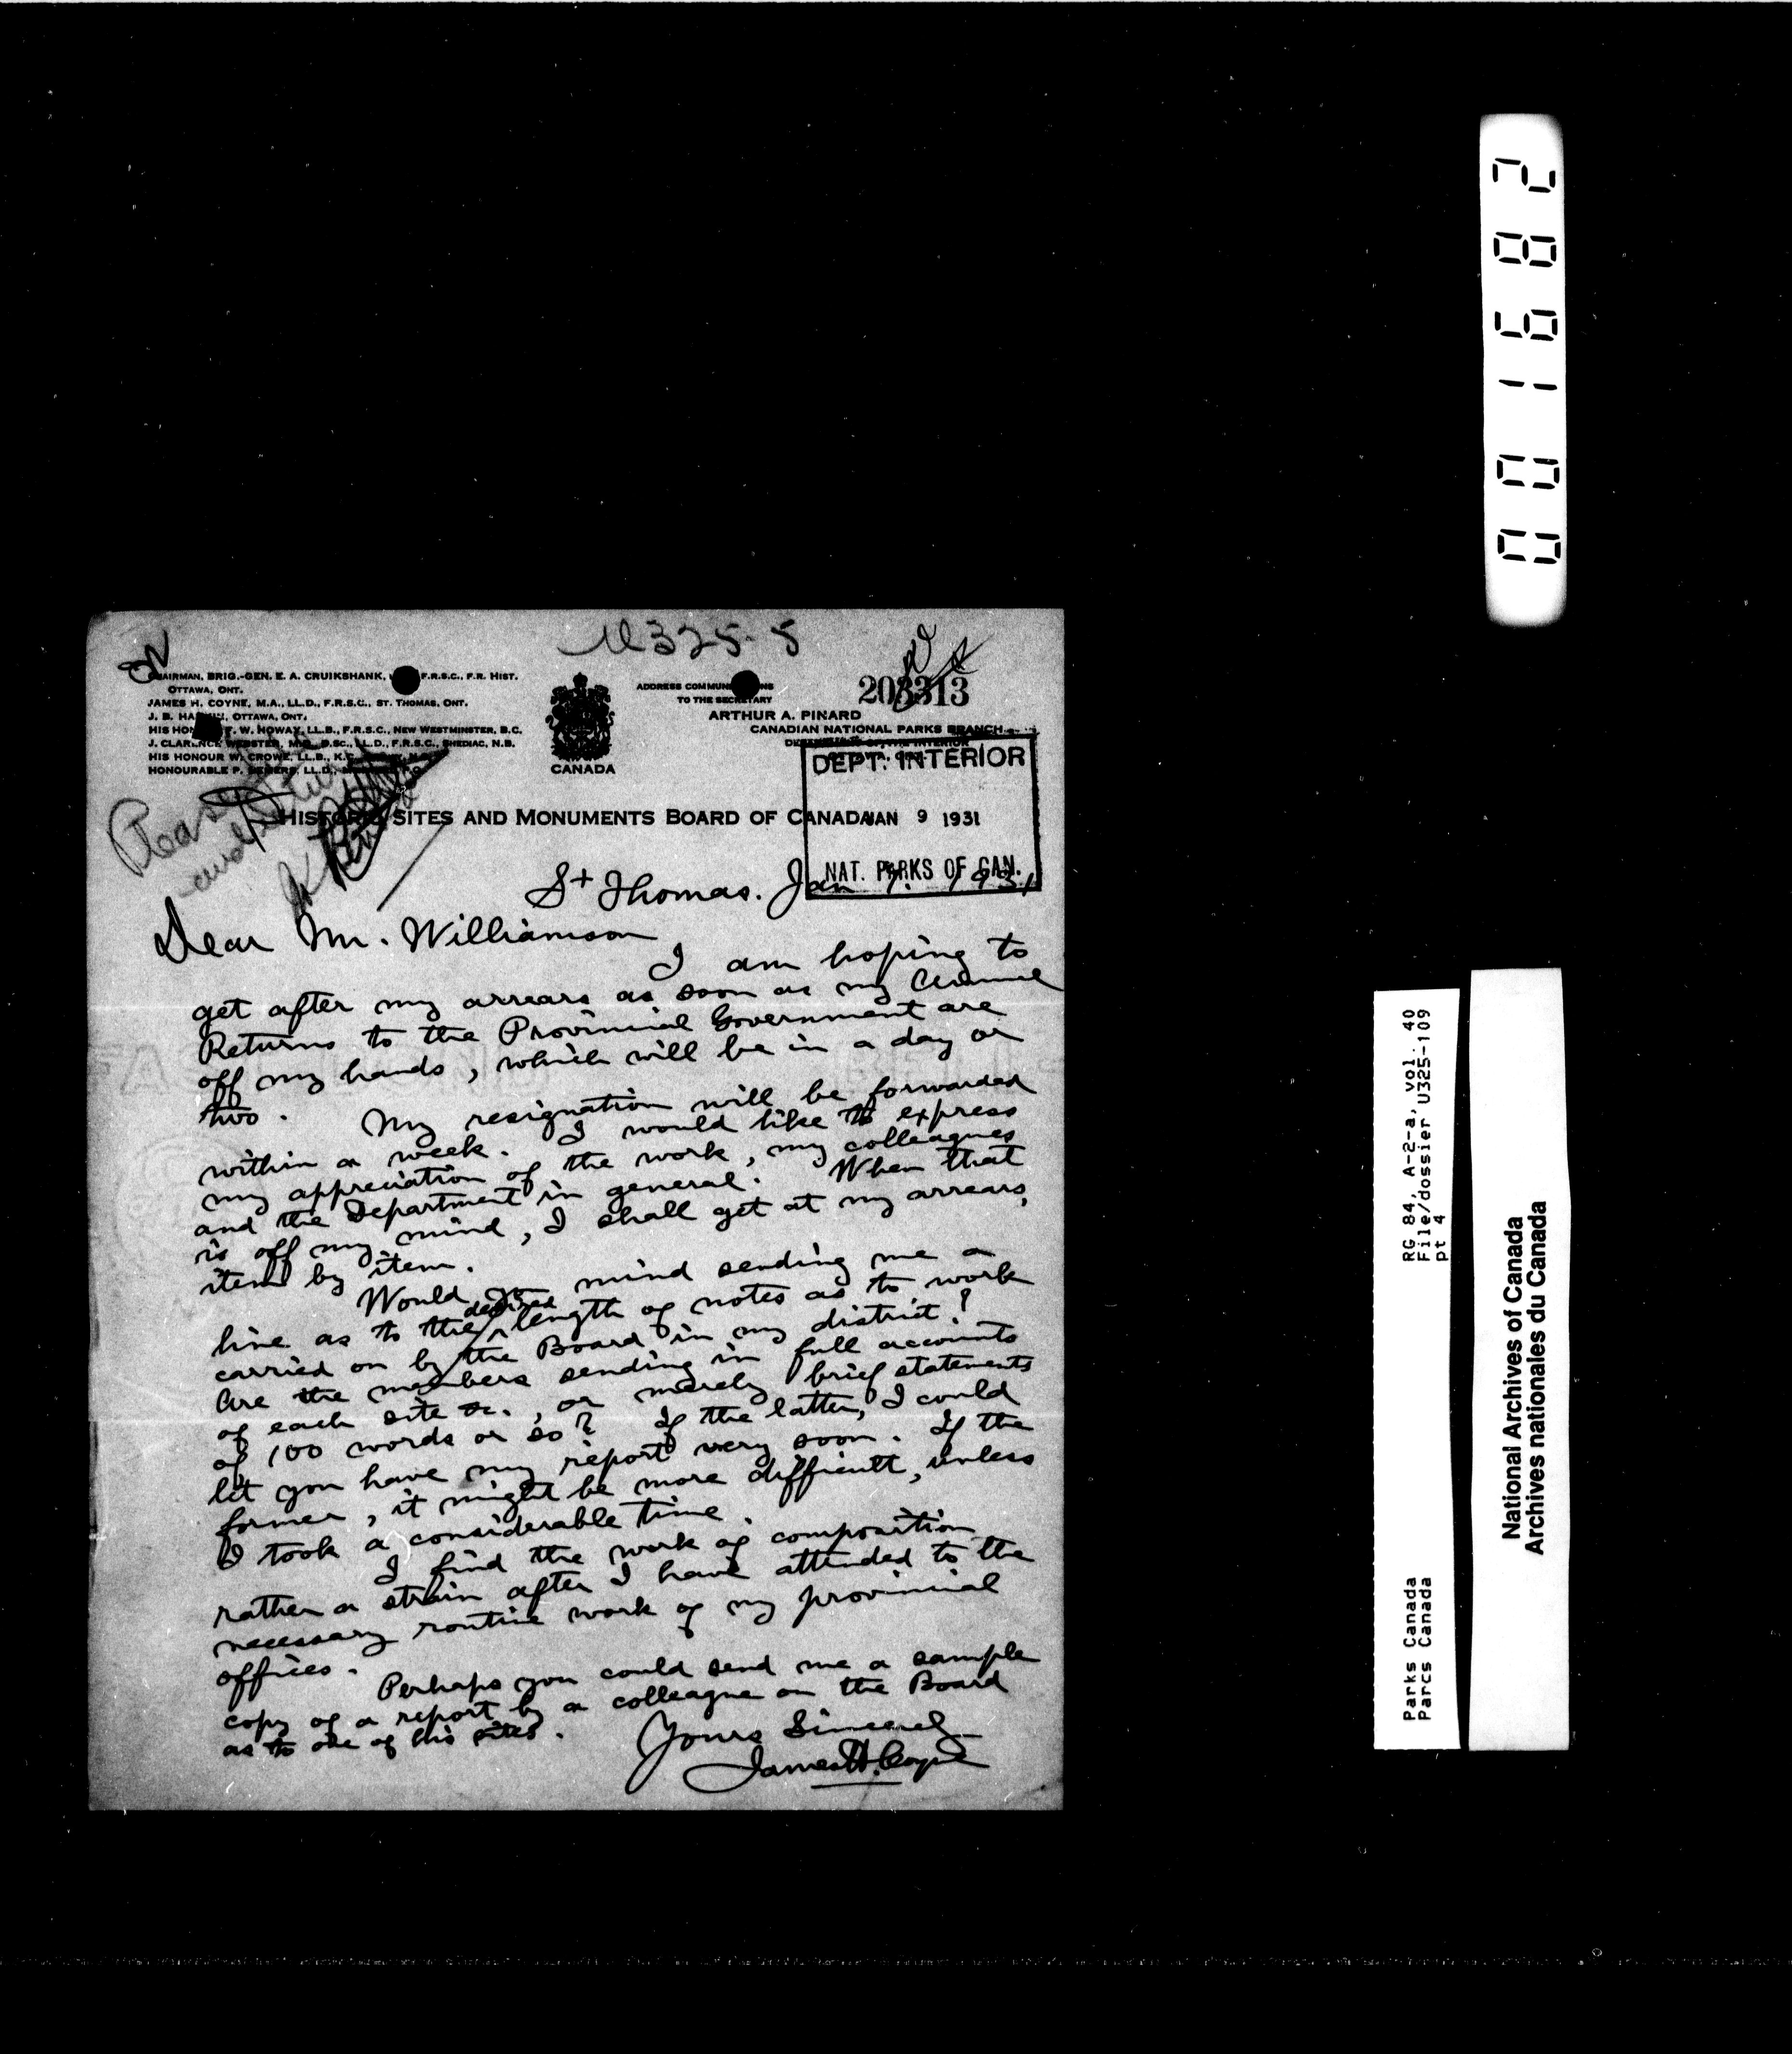 U325-5
CHAIRMAN, BRIG.-GEN. E. A. CRUIKSHANK, F.R.S.C., F.R. HIST.
OTTAWA, ONT.
JAMES H. COYNE, M.A., LL.D., F.R.S.C., ST. THOMAS, ONT.
J. B. OTTAWA, ONT.
HIS F. W. HOWAY, LL.B., F.R.S.C., NEW WESTMINSTER, B.C.
J. CLARENCE WEBSTER, M.D., D.SC., LL.D., F.R.S.C., SHEDIAC, N.B.
HIS HONOUR W. CROWE, LL.B., K.C.
HONOURABLE P. LL.D.,
CANADA
ADDRESS
TO THE SECRETARY
ARTHUR A. PINARD
CANADIAN NATIONAL PARKS BRANCH
DEPARTMENT OF THE INTERIOR
203313
DEPT. INTERIOR
JAN 9 1931
NAT. PARKS OF CAN.
Please
and
HISTORIC SITES AND MONUMENTS BOARD OF CANADA
St Thomas. Jan 7. 1931
Dear Mr. Williamson
I am hoping to
get after my arrears as soon as my Annual
Returns to the Provincial Government are
off my hands, which will be in a day or
two. My resignation will be forwarded
within a week. I would like to express
my appreciation of the work, my colleagues
and the Department in general. When that
is off my mind, I shall get at my arrears,
item by item.
Would you mind sending me a
line as to the desired length of notes as to work
carried on by the Board in my district?
Are the members sending in full accounts
of each site &c., or merely brief statements
of 100 words or so? If the latter, I could
let you have my report very soon. If the
former, it might be more difficult, unless
I took a considerable time.
I find the work of composition
rather a strain after I have attended to the
necessary routine work of my provincial
offices.
Perhaps you could send me a sample
copy of a report by a colleague on the Board
as to one of his sites.
Yours Sincerely
James H. Coyne
001682
RG 84, A-2-a, vol. 40
File/dossier U325-109
pt 4
Parks Canada
Parcs Canada
National Archives of Canada
Archives nationales du Canada